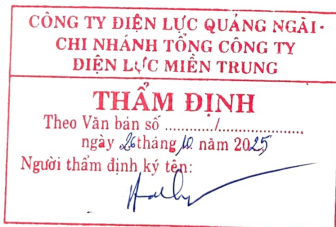 CÔNG TY ĐIỆN LỰC QUẢNG NGÃI -
CHI NHÁNH TỔNG CÔNG TY
ĐIỆN LỰC MIỀN TRUNG
THẨM ĐỊNH
Theo Văn bản số ............/.....................
ngày 26 tháng 10 năm 2025
Người thẩm định ký tên: